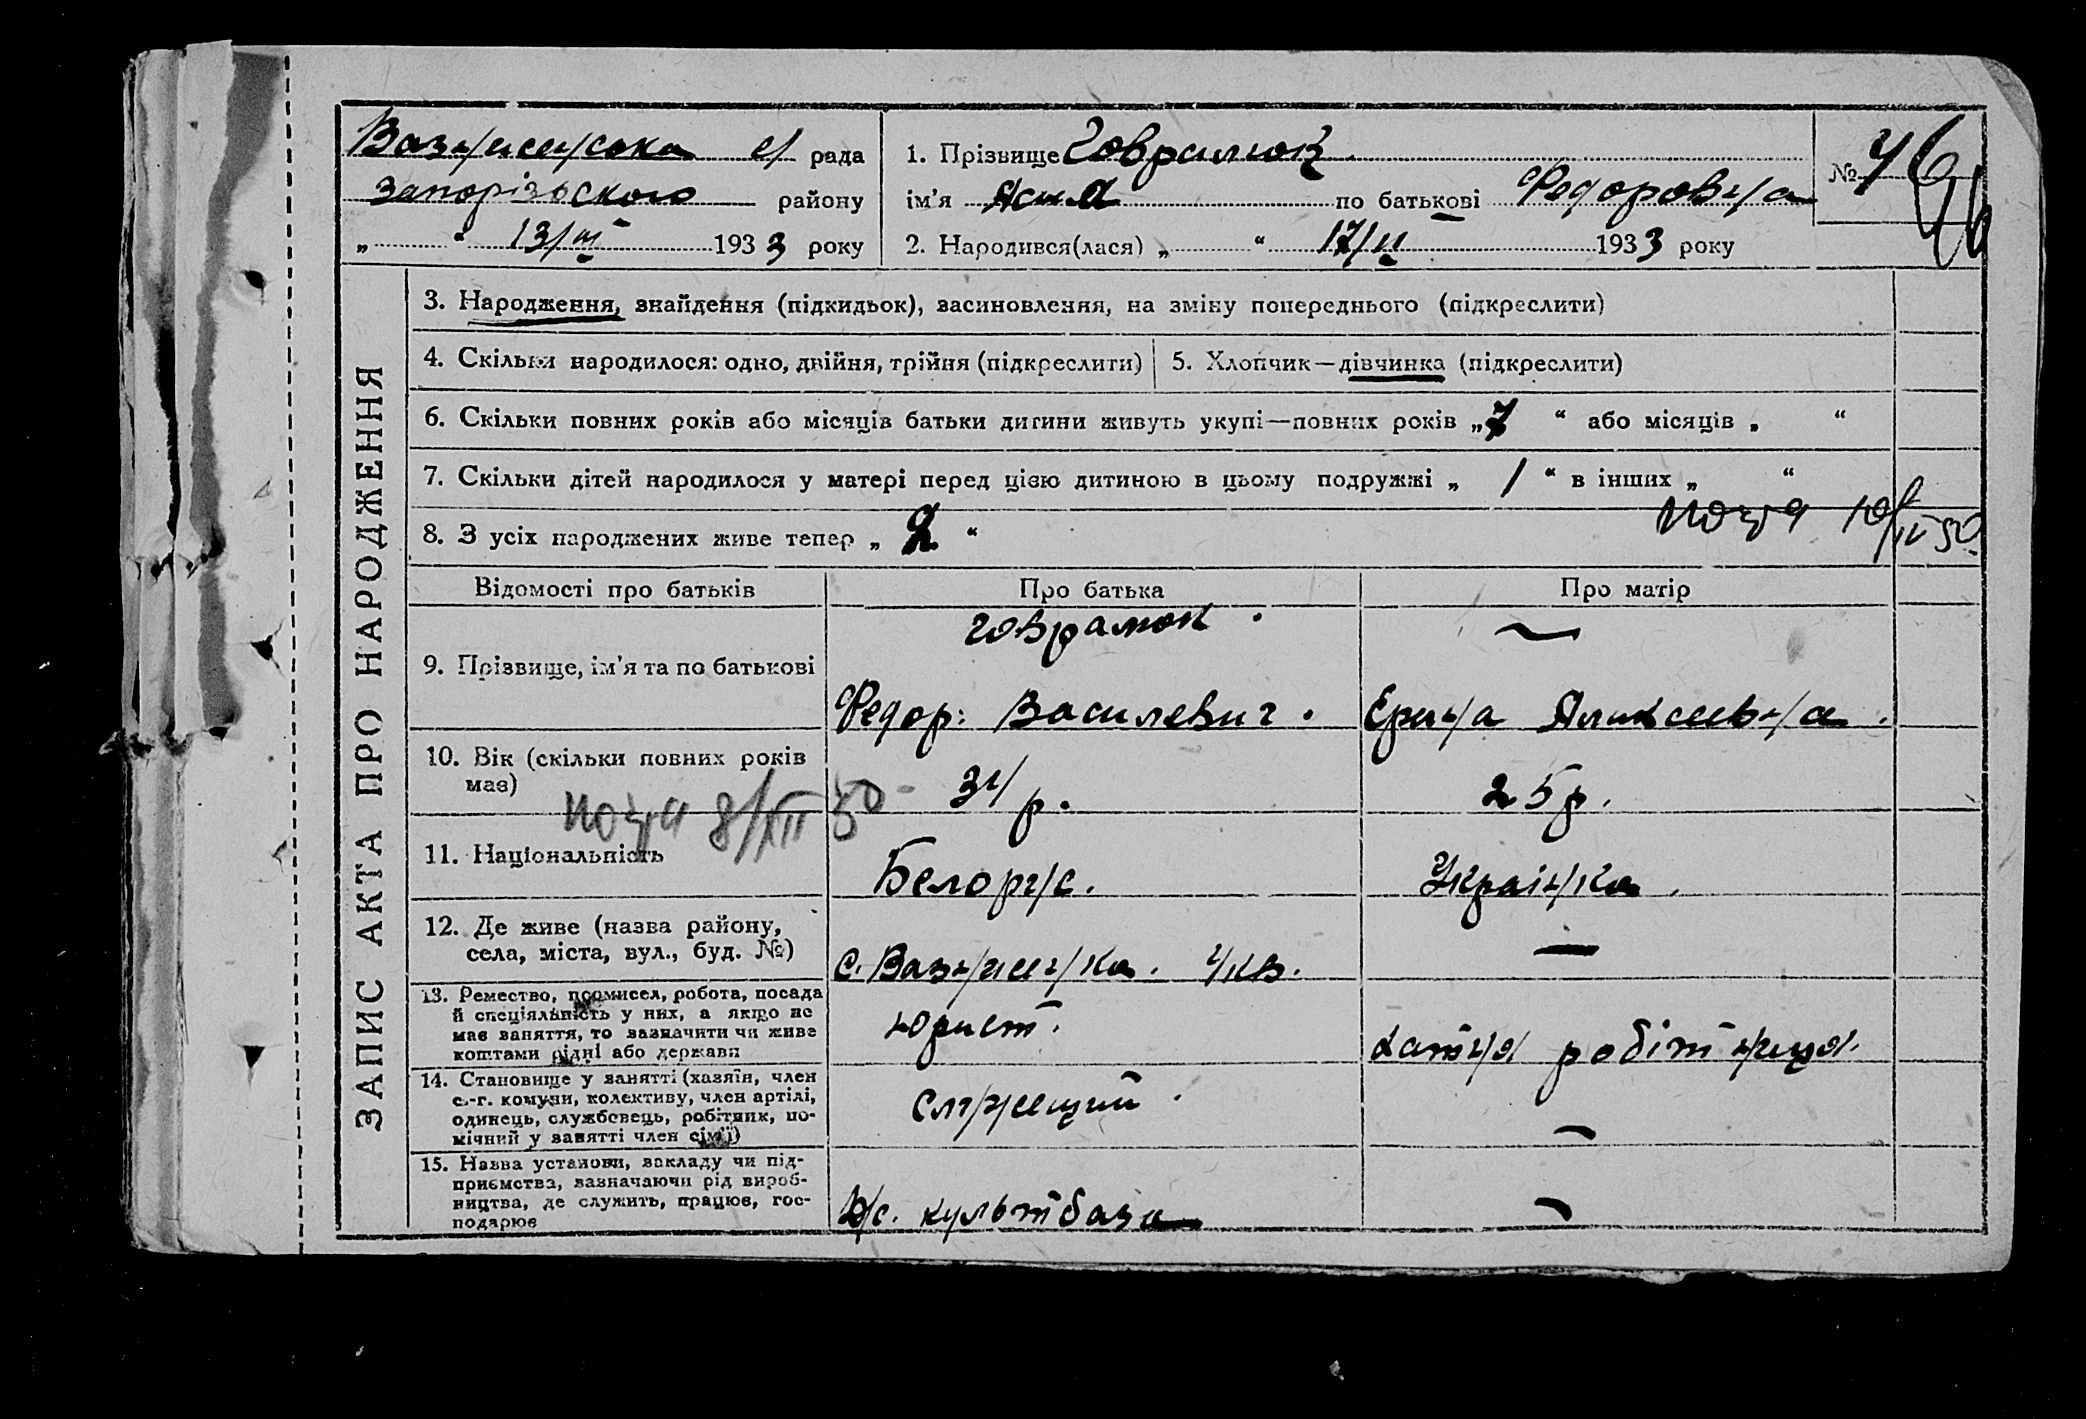 Вазнисенська с/ рада
Запорізьского району
„ “ 13/III 1933 року
1. Прізвище Говралюк
ім’я Асия по батькові Федоровна
2. Народився(лася) „ “ 17/II 1933 року
№
ЗАПИС АКТА ПРО НАРОДЖЕННЯ
3. Народження, знайдення (підкидьок), васиновлення, на зміну попереднього (підкреслити)
4. Скільки народилося: одно, двійня, трійня (підкреслити) 5. Хлопчик—дівчинка (підкреслити)
6. Скільки повних років або місяців батьки дитини живуть укупі—повних років „7“ або місяців „ “
7. Скільки дітей народилося у матері перед цією дитиною в цьому подружжі „ 1 “ в інших „ “
8. З усіх народжених живе тепер „ 2 “
Відомості про батьків Про батька Про матір
9. Прізвище, ім’я та по батькові
Говралюк.
Федор: Василевич. Ерина Аликсеевна.
10. Вік (скільки повних років
має)
34 р. 25 р.
11. Національність
Белорус. Украінка.
12. Де живе (назва району,
села, міста, вул., буд. №)
с. Вазнисенка. 4 кв.
13. Ремество, промисел, робота, посада
й спеціяльність у них, а якщо не
має заняття, то зазначити чи живе
коштами рідні або держави
юрист.
хатня робітниця.
14. Становище у занятті (хазяїн, член
с.-г. комуни, колективу, член артілі,
одинець, службовець, робітник, по-
мічний у занятті член сім’ї)
служещий.
15. Назва установи, закладу чи під-
приємства, зазначаючи рід вироб-
ництва, де служить, працює, гос-
подарює
культбаза